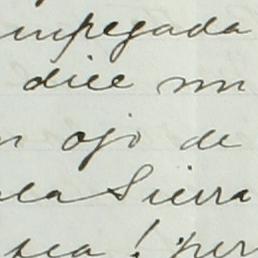 impregada
dice un
ojo de
la Sierra
sea! per